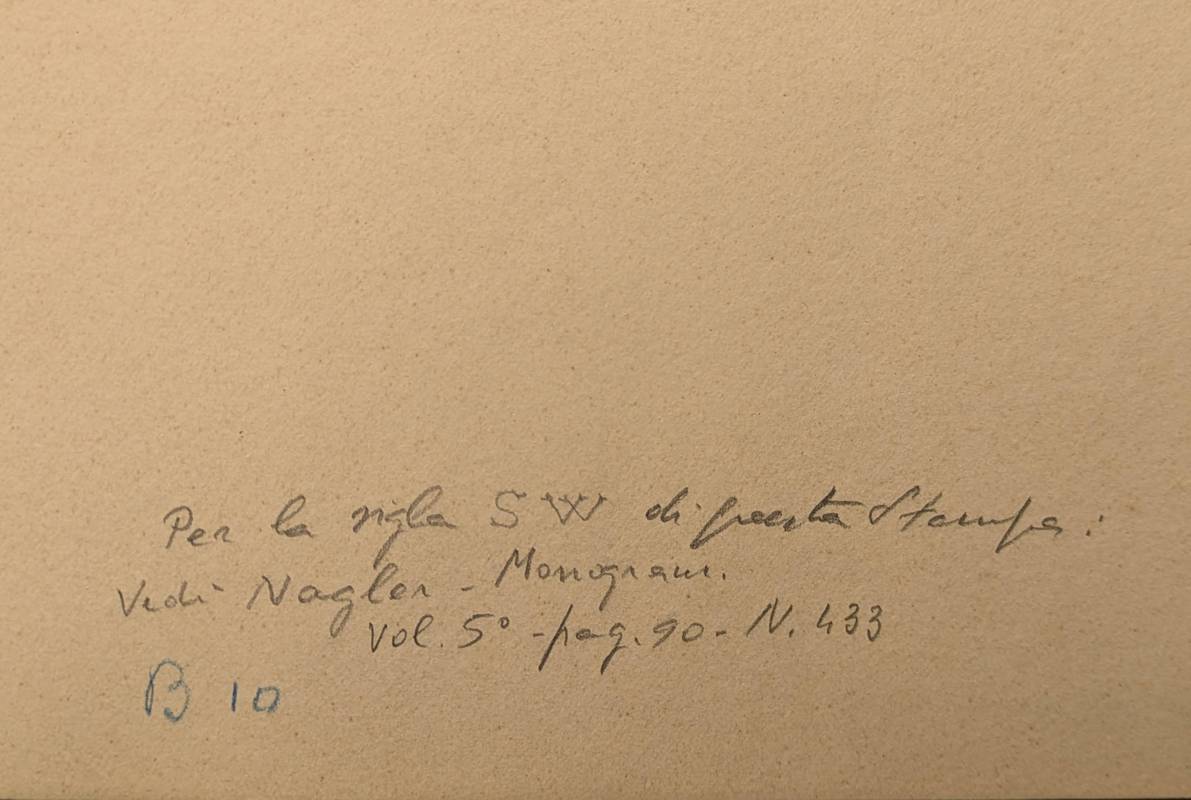 Per la sigla SW di questa Stampa:
Vedi Nagler - Monogram.
Vol. 5° - pag. 90 - N. 433
B 10